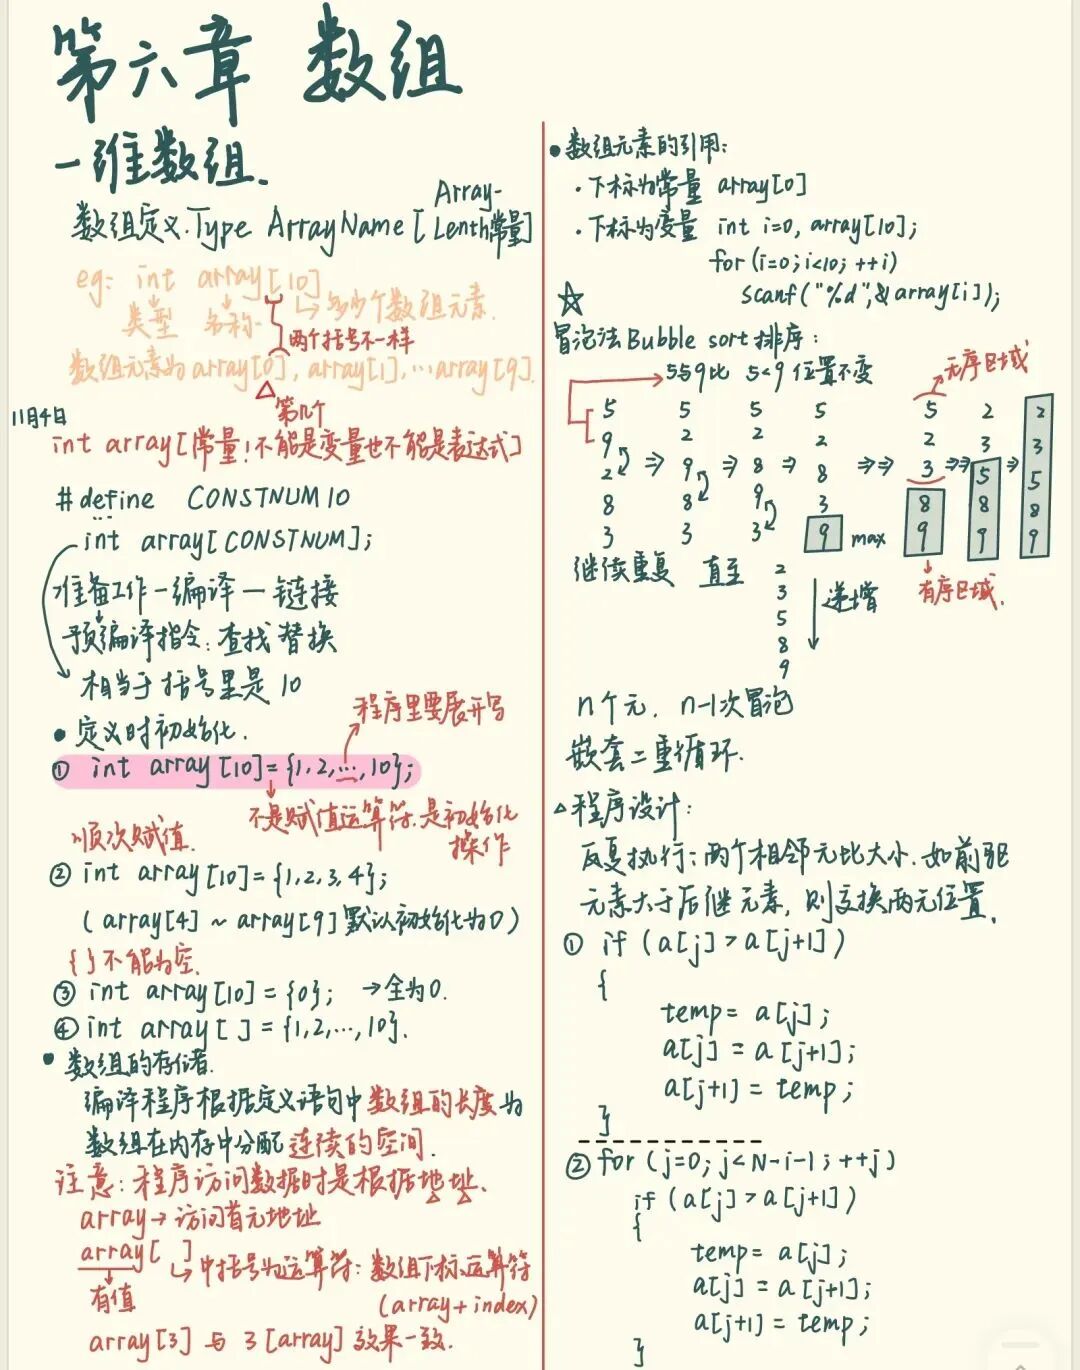 第六章 数组
一维数组.
数组定义. Type ArrayName [Array-Lenth常量]
eg: int array[10]
类型 名称 → 多少个数组元素.
两个括号不一样
数组元素为array[0], array[1], ...array[9].
第几个
11月4日
int array[常量!不能是变量也不能是表达式]
#define CONSTNUM 10
int array[CONSTNUM];
准备工作—编译—链接
预编译指令:查找替换
相当于括号里是10
程序里要展开写
• 定义时初始化.
① int array[10]={1,2,...,10};
不是赋值运算符.是初始化操作
顺次赋值.
② int array[10]={1,2,3,4};
(array[4] ~ array[9]默认初始化为0)
{}不能为空.
③ int array[10]={0}; →全为0.
④ int array[ ]={1,2,...,10}.
• 数组的存储.
编译程序根据定义语句中数组的长度为
数组在内存中分配连续的空间.
注意:程序访问数据时是根据地址.
array→访问首元地址
array[ ]
→中括号为运算符:数组下标运算符
有值
(array+index)
array[3] 与 3[array] 效果一致.
• 数组元素的引用:
·下标为常量 array[0]
·下标为变量 int i=0, array[10];
for(i=0;i<10;++i)
scanf("%d",&array[i]);
☆
冒泡法Bubble sort排序:
5与9比 5<9位置不变
无序区域
5 5 5 5 5 2 2
9 2 2 2 2 3 3
2 ⇒ 9 ⇒ 8 ⇒ 8 ⇒⇒ 3 ⇒⇒ 5 ⇒ 5
8 8 9 3 8 8 8
3 3 3 9 max 9 9 9
有序区域.
继续重复 直至 2
3
5
8
9
递增
n个元. n-1次冒泡
嵌套二重循环.
△程序设计:
反复执行:两个相邻元比大小.如前驱
元素大于后继元素,则交换两元位置.
① if (a[j]>a[j+1])
{
temp= a[j];
a[j] = a[j+1];
a[j+1] = temp;
}
② for (j=0; j<N-i-1; ++j)
if (a[j]>a[j+1])
{
temp= a[j];
a[j] = a[j+1];
a[j+1] = temp;
}